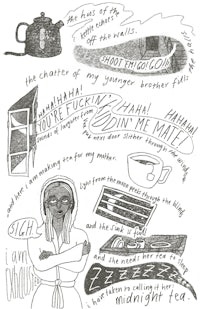 the hues of the
kettle echoes
off the walls.
SHOOT EM! GO! GO!
the chatter of my younger brother fills
HAHA!HAHA!
YOU'RE FUCKIN'
HAHA!
HAHAHA!
DIN' ME MATE!
sounds of laughter from
next door slither through the window
and here i am making tea for my mother.
light from the moon peels through the blinds
and the sink is full
SIGH.
i am
and she needs her tea to sleep
ZZZZZZZ
i have taken to calling it her
midnight tea.